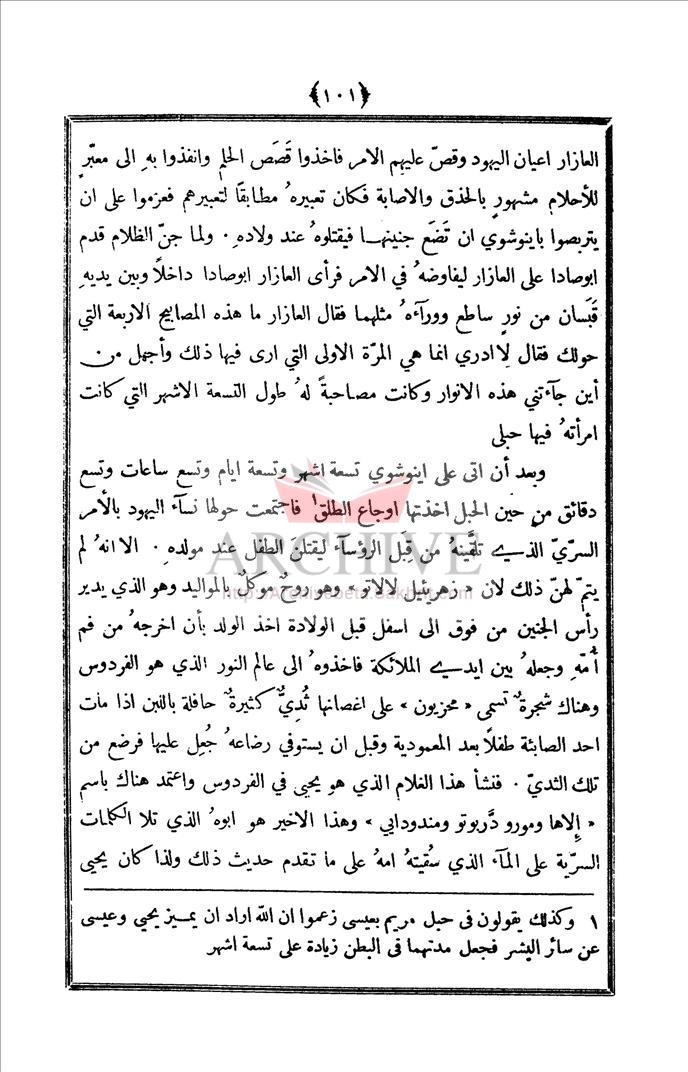 ﴿١٠١﴾
العازار اعيان اليهود وقصّ عليهم الامر فاخذوا قَصَص الحلم وانفذوا بهِ الى معبّرٍ
للأحلام مشهورٍ بالحذق والاصابة فكان تعبيرهُ مطابقًا لتعبيرهم فعزموا على ان
يتربصوا باينوشوي ان تَضَع جنينهـا فيقتلوهُ عند ولادهِ ٠ ولما جنّ الظلام قدم
ابوصادا على العازار ليفاوضهُ في الامر فرأى العازار ابوصادا داخلاً وبين يديهِ
قَبَسان من نورٍ ساطع وورآءهُ مثلهما فقال العازار ما هذه المصابيح الاربعة التي
حولك فقال لاادري انما هي المرّة الاولى التي ارى فيها ذلك وأجهل من
أين جآءتني هذه الانوار وكانت مصاحبةً لهُ طول التسعة الاشهر التي كانت
امرأتهُ فيها حبلى
وبعد أن اتى على اينوشوي تسعة اشهر وتسعة ايام وتسع ساعات وتسع
دقائق من حين الحبل اخذتها اوجاع الطلق١ فاجتمعت حولها نسآء اليهود بالأمر
السرّيّ الذي تلقَّينهُ من قِبَل الرؤسآء ليقتلن الطفل عند مولدهِ ٠ الا انهُ لم
ARCHIVE
يتمّ لهنّ ذلك لان « زهريئيل لالاتو » وهو روحٌ موكلٌ بالمواليد وهو الذي يدير
رأس الجنين من فوق الى اسفل قبل الولادة اخذ الولد بأن اخرجهُ من فم
أُمّهِ وجعلهُ بين ايدي الملائكة فاخذوهُ الى عالم النور الذي هو الفردوس
وهناك شجرةٌ تسمى « محزيون » على اغصانها ثُدِيٌّ كثيرةٌ حافلة باللبن اذا مات
احد الصابئة طفلاً بعد المعمودية وقبل ان يستوفي رضاعهُ جُعِل عليها فرضع من
تلك الثديّ ٠ فنشأ هذا الغلام الذي هو يحيى في الفردوس واعتمد هناك باسم
« إِلاها ومورو دَّربوتو ومندودابي » وهذا الاخير هو ابوهُ الذي تلا الكلمات
السرّية على المآء الذي سُقيتهُ امهُ على ما تقدم حديث ذلك ولذا كان يحيى
١ وكذلك يقولون في حبل مريم بعيسى زعموا ان الله اراد ان يمـيز يحيى وعيسى
عن سائر البشر فجعل مدتهما في البطن زيادة على تسعة اشهر